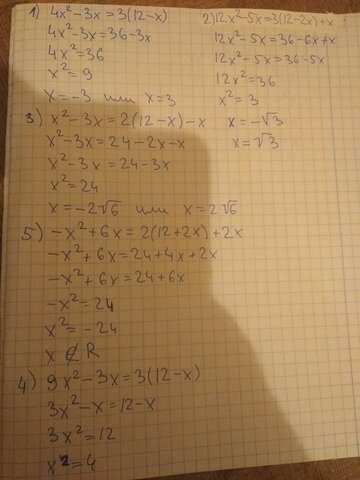 1) 4x²-3x=3(12-x)
4x²-3x=36-3x
4x²=36
x²=9
x=-3 или x=3
2) 12x²-5x=3(12-2x)+x
12x²-5x=36-6x+x
12x²-5x=36-5x
12x²=36
x²=3
x=-√3
x=√3
3) x²-3x=2(12-x)-x
x²-3x=24-2x-x
x²-3x=24-3x
x²=24
x=-2√6 или x=2√6
5) -x²+6x=2(12+2x)+2x
-x²+6x=24+4x+2x
-x²+6x=24+6x
-x²=24
x²=-24
x∉R
4) 9x²-3x=3(12-x)
3x²-x=12-x
3x²=12
x²=4